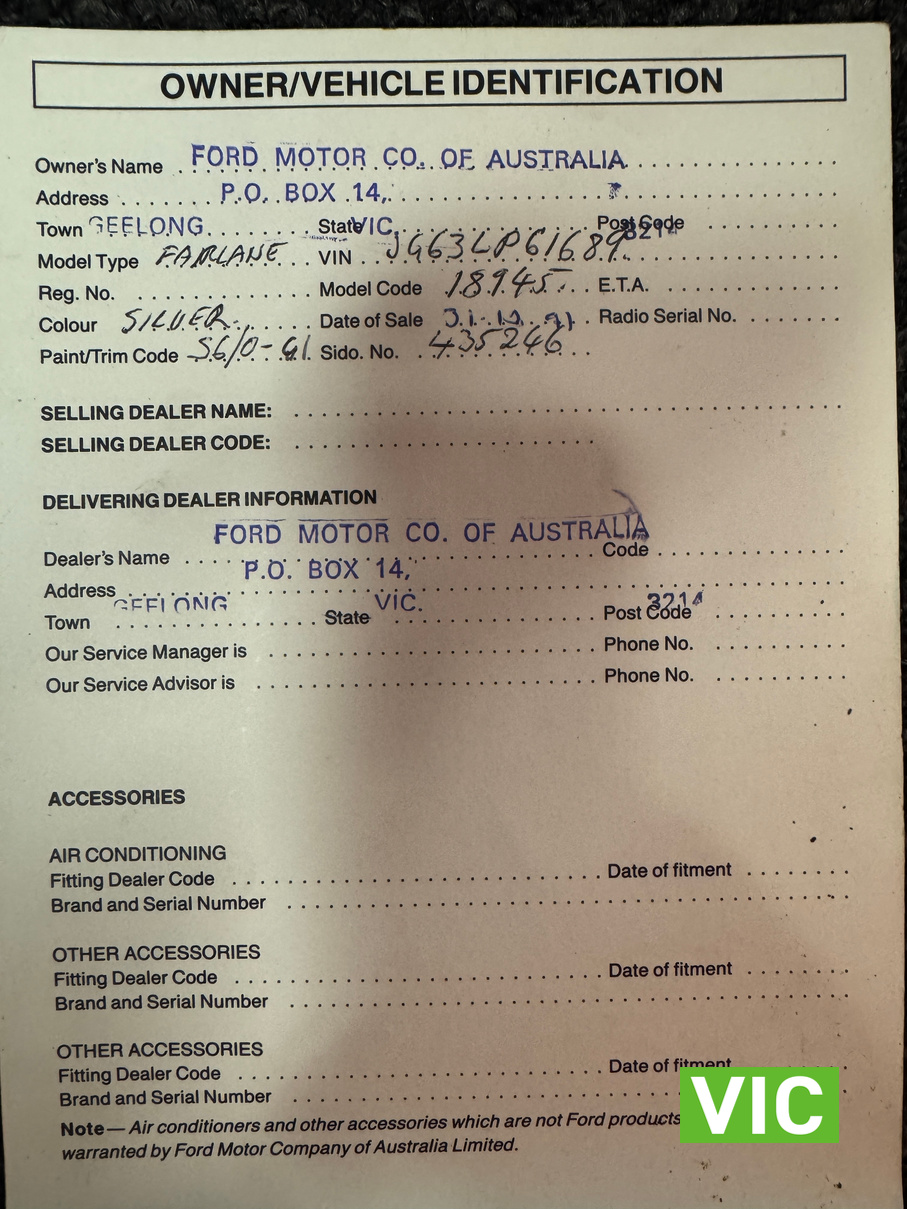 OWNER/VEHICLE IDENTIFICATION
Owner's Name FORD MOTOR CO. OF AUSTRALIA
Address P.O. BOX 14,
Town GEELONG State VIC. Post Code 3214
Model Type FAIRLANE VIN JG63LP61689
Reg. No. Model Code 18945 E.T.A.
Colour SILVER Date of Sale Radio Serial No.
Paint/Trim Code Sido. No. 435246
SELLING DEALER NAME:
SELLING DEALER CODE:
DELIVERING DEALER INFORMATION
FORD MOTOR CO. OF AUSTRALIA
Dealer's Name Code
P.O. BOX 14,
Address
GEELONG VIC. 3214
Town State Post Code
Our Service Manager is Phone No.
Our Service Advisor is Phone No.
ACCESSORIES
AIR CONDITIONING
Fitting Dealer Code Date of fitment
Brand and Serial Number
OTHER ACCESSORIES
Fitting Dealer Code Date of fitment
Brand and Serial Number
OTHER ACCESSORIES
Fitting Dealer Code Date of fitment
Brand and Serial Number
Note— Air conditioners and other accessories which are not Ford products
warranted by Ford Motor Company of Australia Limited.
VIC